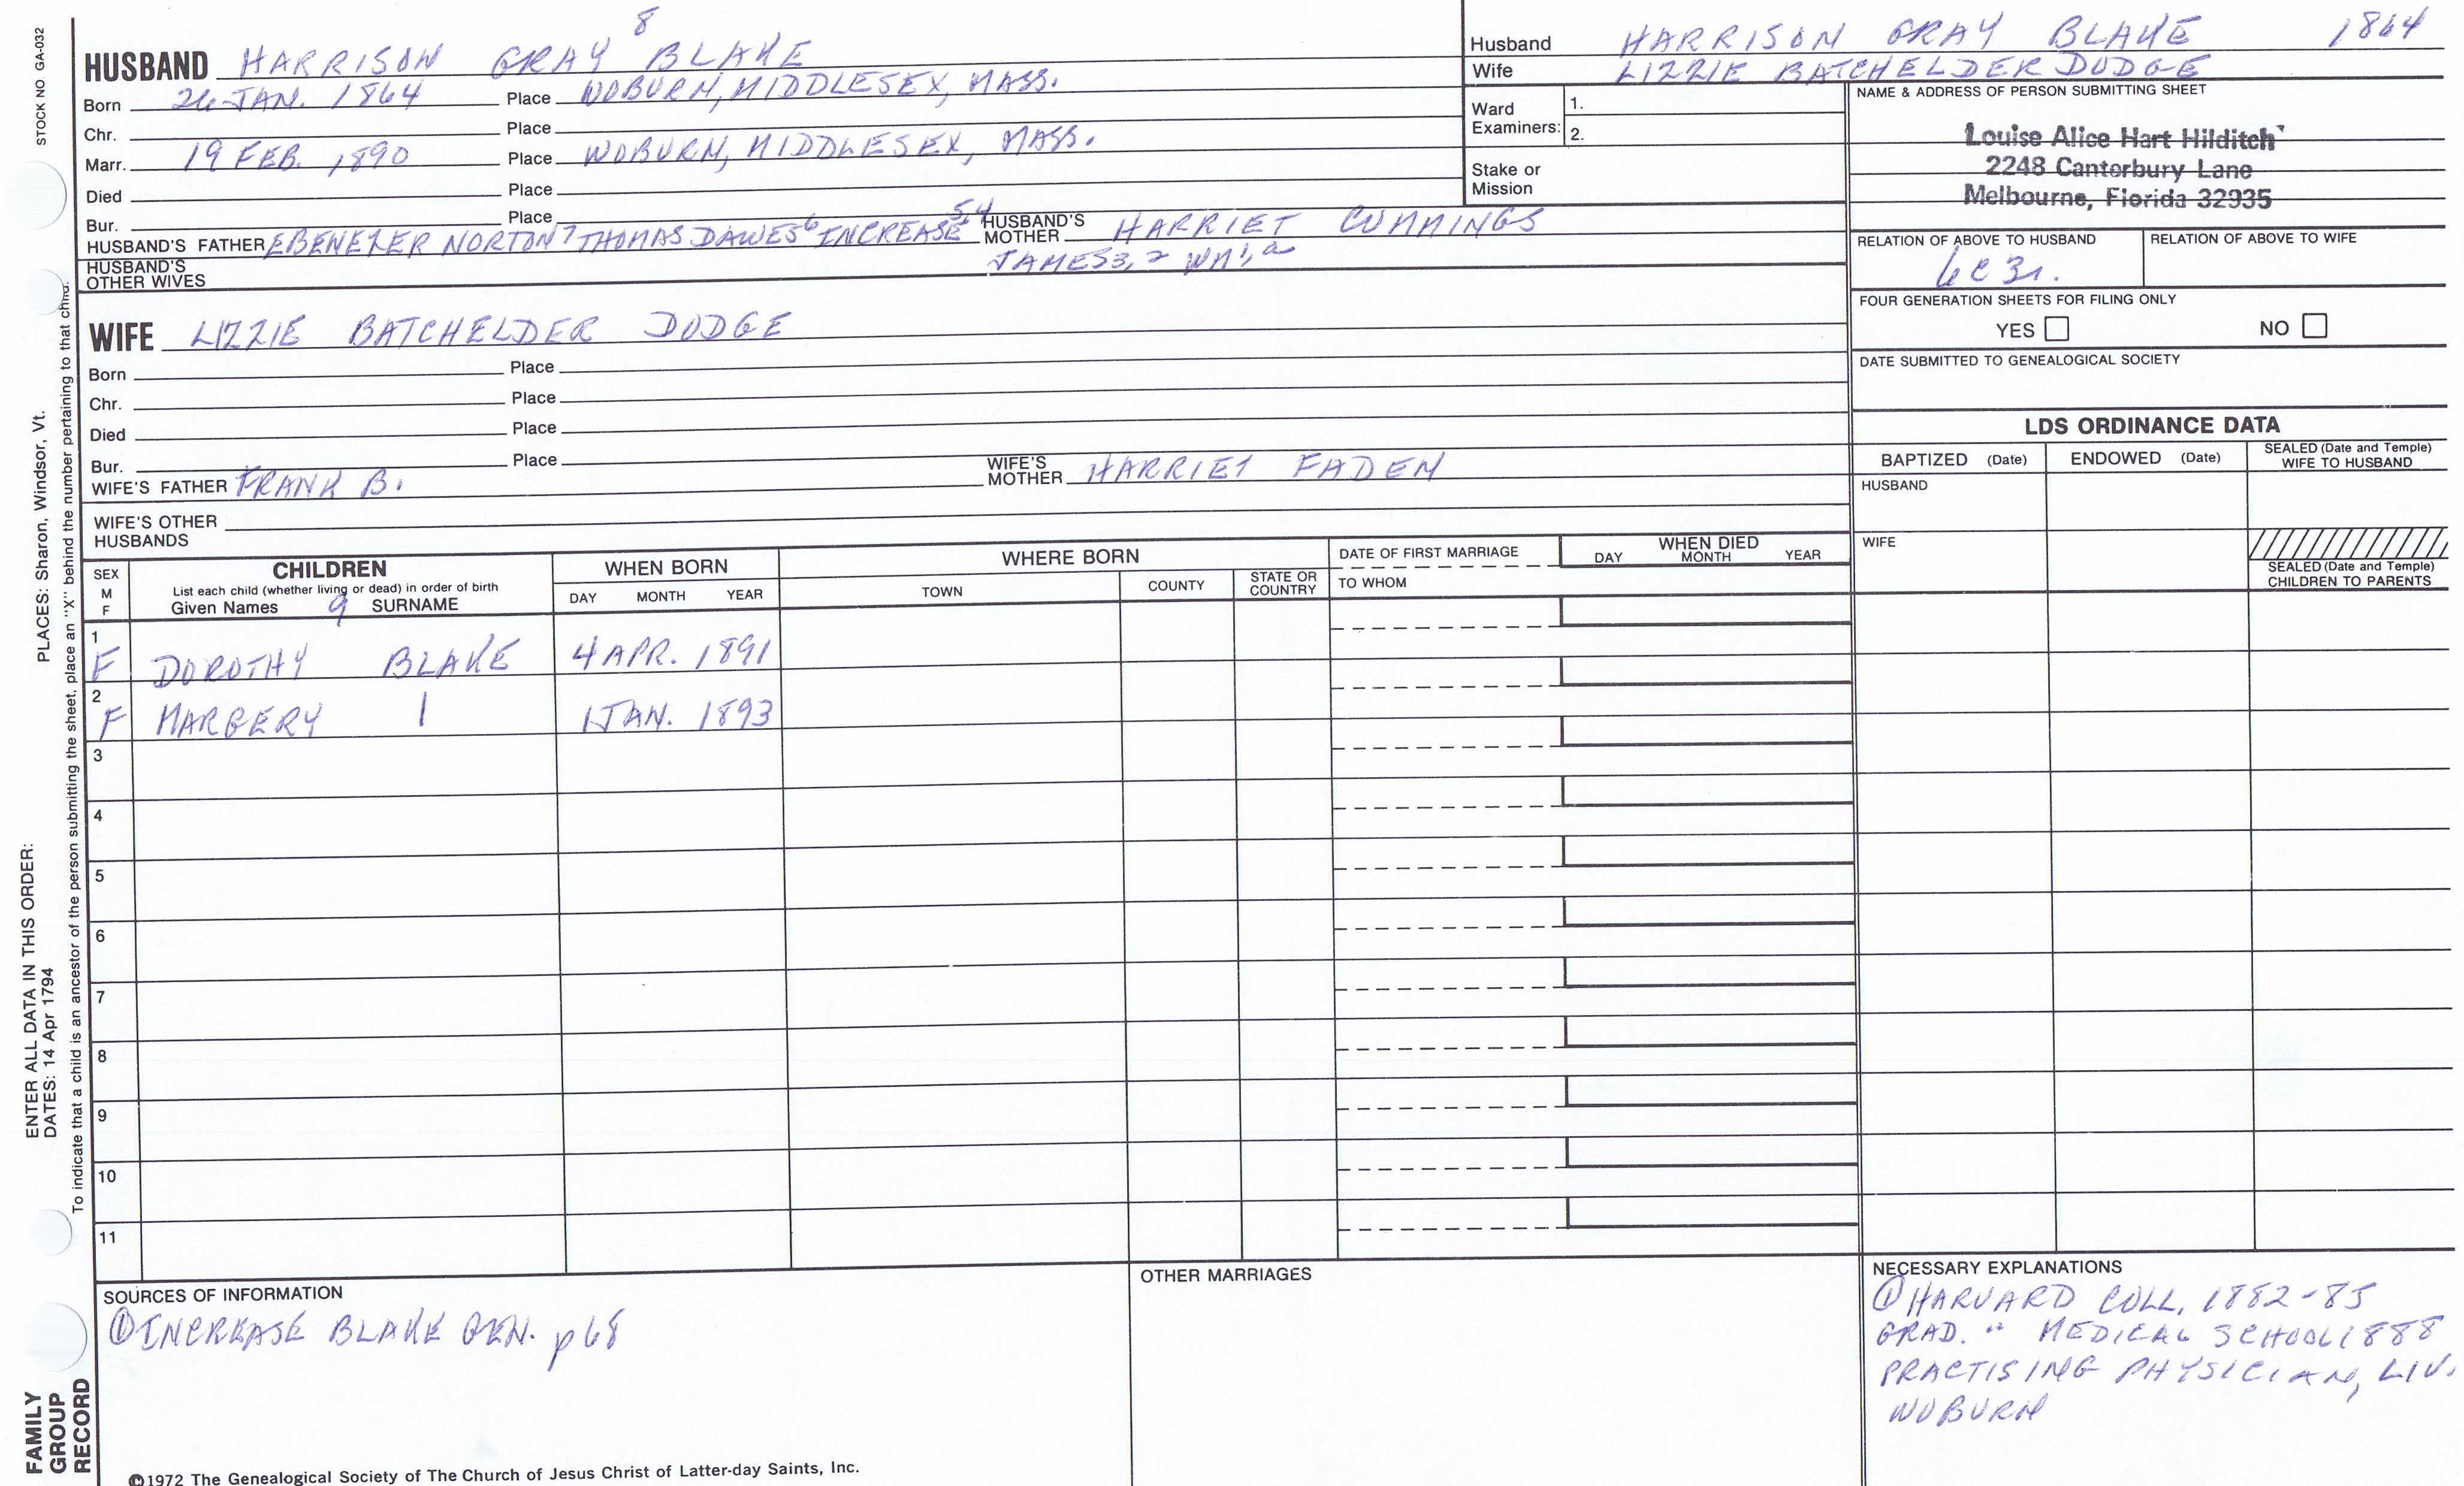 STOCK NO GA-032
8
HUSBAND HARRISON GRAY BLAKE
Born 26 JAN. 1864 Place WOBURN, MIDDLESEX, MASS.
Chr. Place
Marr. 19 FEB. 1890 Place WOBURN, MIDDLESEX, MASS.
Died Place
Bur. Place
HUSBAND'S FATHER EBENEZER NORTON 7 THOMAS DAWES 6 INCREASE 5,4 HUSBAND'S MOTHER HARRIET CUMMINGS
HUSBAND'S OTHER WIVES JAMES 3, 2 WM 1, a
WIFE LIZZIE BATCHELDER DODGE
Born Place
Chr. Place
Died Place
Bur. Place
WIFE'S FATHER FRANK B. WIFE'S MOTHER HARRIET FADEN
WIFE'S OTHER HUSBANDS
Husband HARRISON GRAY BLAKE 1864
Wife LIZZIE BATCHELDER DODGE
Ward Examiners: 1.
2.
Stake or Mission
NAME & ADDRESS OF PERSON SUBMITTING SHEET
Louise Alice Hart Hilditch
2248 Canterbury Lane
Melbourne, Florida 32935
RELATION OF ABOVE TO HUSBAND RELATION OF ABOVE TO WIFE
6C 3r.
FOUR GENERATION SHEETS FOR FILING ONLY
YES NO
DATE SUBMITTED TO GENEALOGICAL SOCIETY
LDS ORDINANCE DATA
BAPTIZED (Date) ENDOWED (Date) SEALED (Date and Temple) WIFE TO HUSBAND
HUSBAND
WIFE
SEALED (Date and Temple) CHILDREN TO PARENTS
SEX M F
CHILDREN
List each child (whether living or dead) in order of birth
Given Names 9 SURNAME
WHEN BORN
DAY MONTH YEAR
WHERE BORN
TOWN COUNTY STATE OR COUNTRY
DATE OF FIRST MARRIAGE
TO WHOM
WHEN DIED
DAY MONTH YEAR
1 F DOROTHY BLAKE 4 APR. 1891
2 F MARGERY | 1 JAN. 1893
3
4
5
6
7
8
9
10
11
SOURCES OF INFORMATION
① INCREASE BLAKE GEN. p68
OTHER MARRIAGES
NECESSARY EXPLANATIONS
① HARVARD COLL, 1882-85
GRAD. " MEDICAL SCHOOL 1888
PRACTISING PHYSICIAN, LIV.
WOBURN
©1972 The Genealogical Society of The Church of Jesus Christ of Latter-day Saints, Inc.
FAMILY GROUP RECORD
ENTER ALL DATA IN THIS ORDER:
DATES: 14 Apr 1794 PLACES: Sharon, Windsor, Vt.
To indicate that a child is an ancestor of the person submitting the sheet, place an "X" behind the number pertaining to that child.